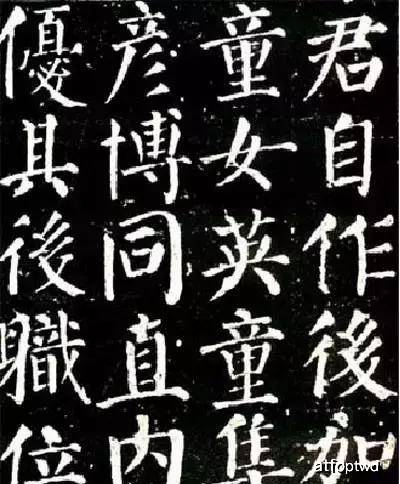 君自作後加
童女英童集
彦博同直内
優其後職位
atfoptwd